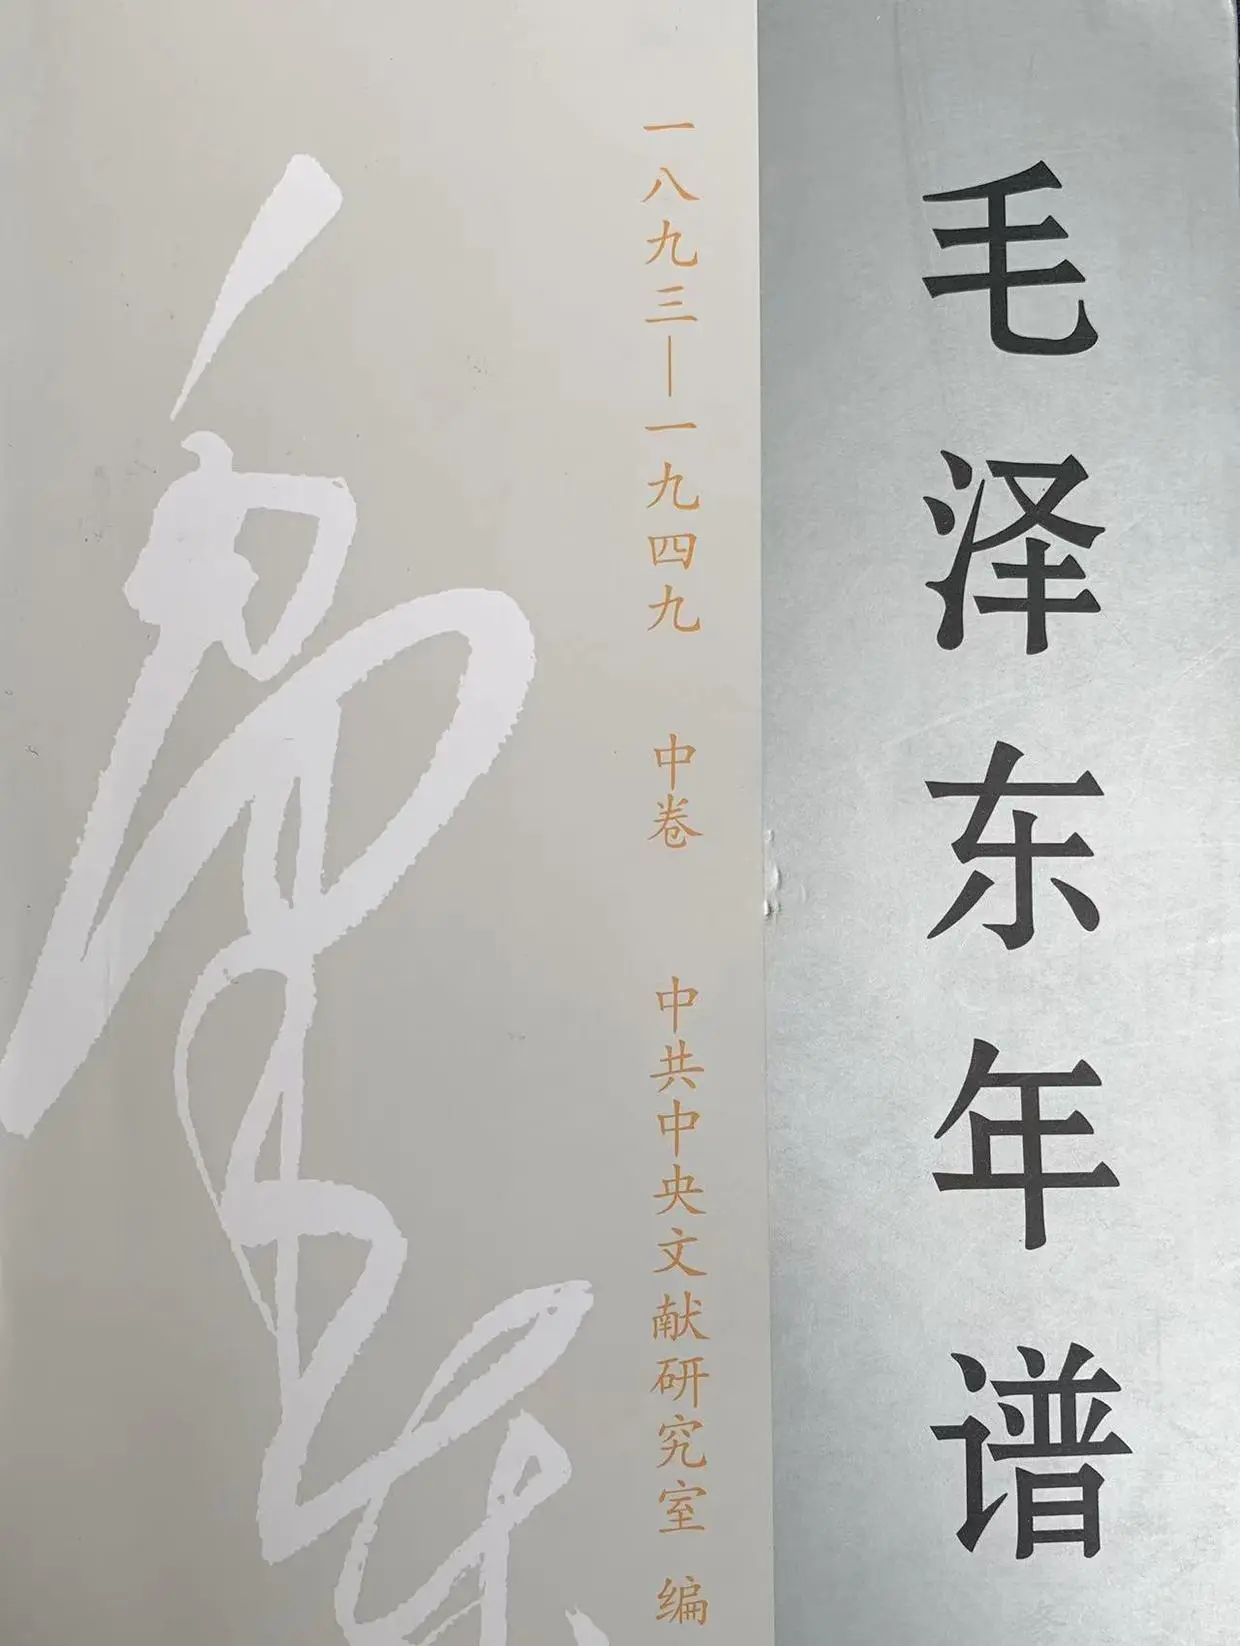 毛泽东年谱
一八九三—一九四九 中卷 中共中央文献研究室 编